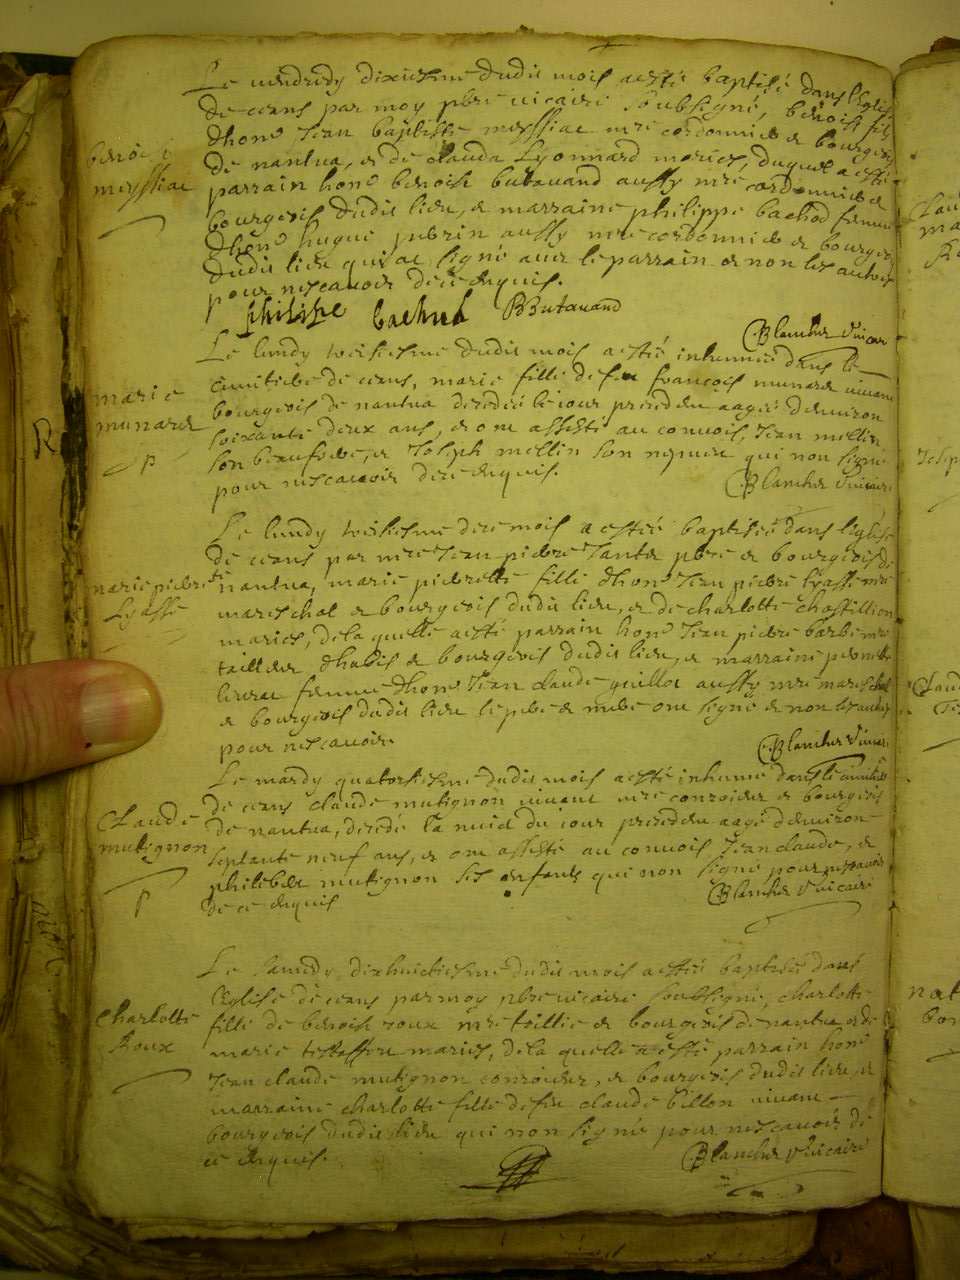 Le vendredy dixiesme dudit mois a esté baptisé dans l'eglise
de ceans par moy pbre vicaire soubsigné, benoist fils
dhon. Jean baptiste meyssiac mre cordonnier et bourgeois
benoist
meyssiac
de nantua, et de clauda Lyonnard mariés, duquel a esté
parrain hon. benoist butavand aussy mre cordonnier et
bourgeois dudit lieu, et marraine philippe bachod femme
dhon. hugue juvrin aussy mre cordonnier et bourgeois
dudit lieu qui at signé avec le parrain et non les autres
pour nescavoir de ce enquis.
philipe bachod BButavand
Blanchet Vicair
Le lundy treisiesme dudit mois a esté inhumée dans le
cimitiere de ceans, marie fille de feu françois munard vivant
marie
munard
bourgeois de nantua decedée le jour precedent aagée denviron
soixante deux ans, et ont assisté au convois, Jean mellin
son beaufrere, et Joseph mellin son nepveu qui nont signé
pour nescavoir de ce enquis.
Blanchet Vicaire
R
p
Le lundy treisiesme de ce mois a esté baptisée dans l'eglise
de ceans par mre Jean pierre Jantet pbre et bourgeois de
marie pierrette
Lyasse
nantua, marie pierrette fille dhon. Jean pierre lyasse mre
mareschal et bourgeois dudit lieu, et de charlotte chastillion
mariés, de la quelle a esté parrain hon. Jean pierre barbe mre
tailleur dhabis et bourgeois dudit lieu, et marraine pernette
femme dhon. Jean claude guillot aussy mre mareschal
et bourgeois dudit lieu le pere et mere ont signé et non les autres
pour nescavoir.
Blanchet Vicair
Le mardy quatorsiesme dudit mois a esté inhumé dans le cimitiere
de ceans claude mutignon vivant mre conroieur et bourgeois
Claude
mutignon
de nantua, decedé la nuict du jour precedent aagé denviron
septante neuf ans, et ont assisté au convois Jean claude, et
philibert mutignon ses enfants qui nont signé pour nescavoir
de ce enquis
Blanchet Vicaire
p
Le samedy dixhuictiesme dudit mois a esté baptisée dans
l'eglise de ceans par moy pbre vicaire soubsigné, charlotte
Charlotte
Roux
fille de benoist roux mre et bourgeois de nantua, et de
marie mariés, de la quelle a esté parrain hon.
Jean claude mutignon conroieur, et bourgeois dudit lieu, et
marraine charlotte fille de feu claude billon vivant
bourgeois dudit lieu qui nont signé pour nescavoir de
ce enquis.
Blanchet Vicaire